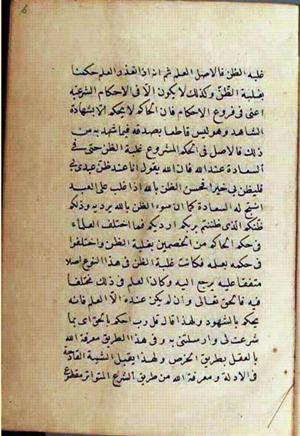 غلبة الظن فالاصل العلم ثم اذا تعذر العلم حكمنا
بغلبة الظن وكذلك لا يكون الا في الاحكام الشرعية
اعني في فروع الاحكام فان الحاكم لا يحكم الا بشهادة
الشاهد وهو ليس قاطعا بصدقه فيما شهد به من
ذلك فالاصل في الحكم المشروع غلبة الظن حتى في
السعادة عند الله فان الله يقول انا عند ظن عبدي بي
فليظن بي خيرا فحسن الظن بالله اذا غلب على العبد
انتج له السعادة كما ان سوء الظن بالله يرديه وذلكم
ظنكم الذي ظننتم بربكم ارديكم فما اختلف العلماء
في حكم الحاكم من الخصمين بغلبة الظن واختلفوا
في حكمه بعلمه فكانت غلبة الظن في هذا النوع اصلا
متفقا عليه يرجع اليه وكان العلم في ذلك مختلفا
فيه فالحق تعالى وان لم يكن عنده الا العلم فانه
يحكم بالشهود ولهذا قال قل رب احكم بالحق اي بما
شرعت لي وارسلتني به وفي هذا الطريق معرفة الله
بالعقل بطريق الخرص ولهذا يقبل الشبه القادحة
في الادلة ومعرفة الله من طريق الشرع المتواتر مقطوع